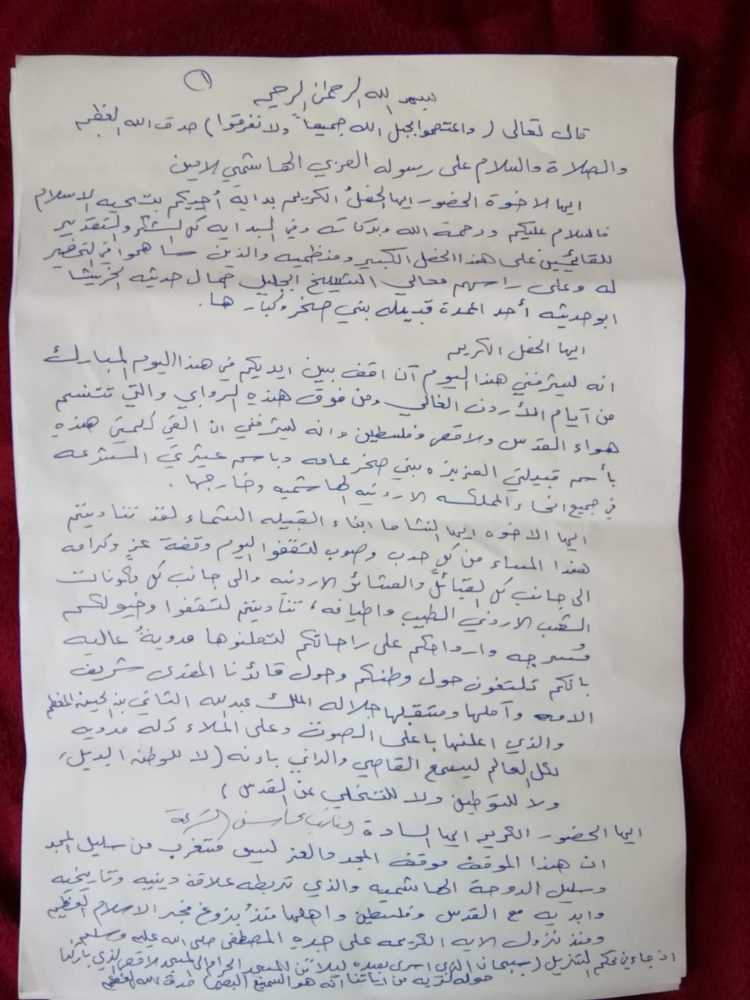 ١
بسم الله الرحمن الرحيم
قال تعالى ( واعتصموا بحبل الله جميعاً ولا تفرقوا ) صدق الله العظيم
والصلاة والسلام على رسوله العربي الهاشمي الامين
ايها الاخوة الحضور ايها الحفل الكريم بداية أحييكم بتحية الاسلام
فالسلام عليكم ورحمة الله وبركاته وفي البدايه كل الشكر والتقدير
للقائمين على هذا الحفل الكبير ومنظميه والذين ساهموا في التحضير
له وعلى راسهم معالي الشيخ الجليل جمال حديثه الخريشا
ابو حديثه أحد اعمدة قبيله بني صخر وكبارها .
ايها الحفل الكريم
انه ليشرفني هذا اليوم أن اقف بين ايديكم في هذا اليوم المبارك
من أيام الأردن الغالي ومن فوق هذه الروابي والتي تتنسم
هواء القدس والاقصى وفلسطين وانه ليشرفني ان القي كلمتي هذه
بأسم قبيلتي العزيزه بني صخر عامه وباسم عشيرتي
في جميع انحاء المملكه الاردنيه الهاشميه وخارجها .
ايها الاخوه ايها النشاما ابناء القبيله الشماء لقد تناديتم
هذا المساء من كل حدب وصوب لتقفوا اليوم وقفة عز وكرامه
الى جانب كل القبائل والعشائر الاردنيه والى جانب كل مكونات
الشعب الاردني الطيب واطيافه ، تناديتم لتقفوا وخيولكم
مسرجه وارواحكم على راحاتكم لتعلنوها مدويةً عاليه
بانكم تلتفون حول وطنكم وحول قائدنا المفدى شريف
الامه وأملها ومستقبلها جلاله الملك عبدالله الثاني بن الحسين المعظم
والذي اعلنها باعلى الصوت وعلى الملاء كله مدويه
لكل العالم ليسمع القاصي والداني بانه ( لا للوطن البديل ،
ولا للتوطين ولا للتخلي عن القدس )
ايها الحضور الكريم ايها السادة
ان هذا الموقف موقف المجد والعز ليس مستغرب من سليل المجد
وسليل الدوحة الهاشميه والذي تربطه علاقة دينيه وتاريخيه
وابديه مع القدس وفلسطين واهلها منذُ بزوغ فجر الاسلام العظيم
ومنذ نزول الايه الكريمه على جده المصطفى صلى الله عليه وسلم
اذ جاء في محكم التنزيل ( سبحان الذي اسرى بعبده ليلاً من المسجد الحرام الى المسجد الاقصى الذي باركنا
حوله لنريه من اياتنا انه هو السميع البصير ) صدق الله العظيم